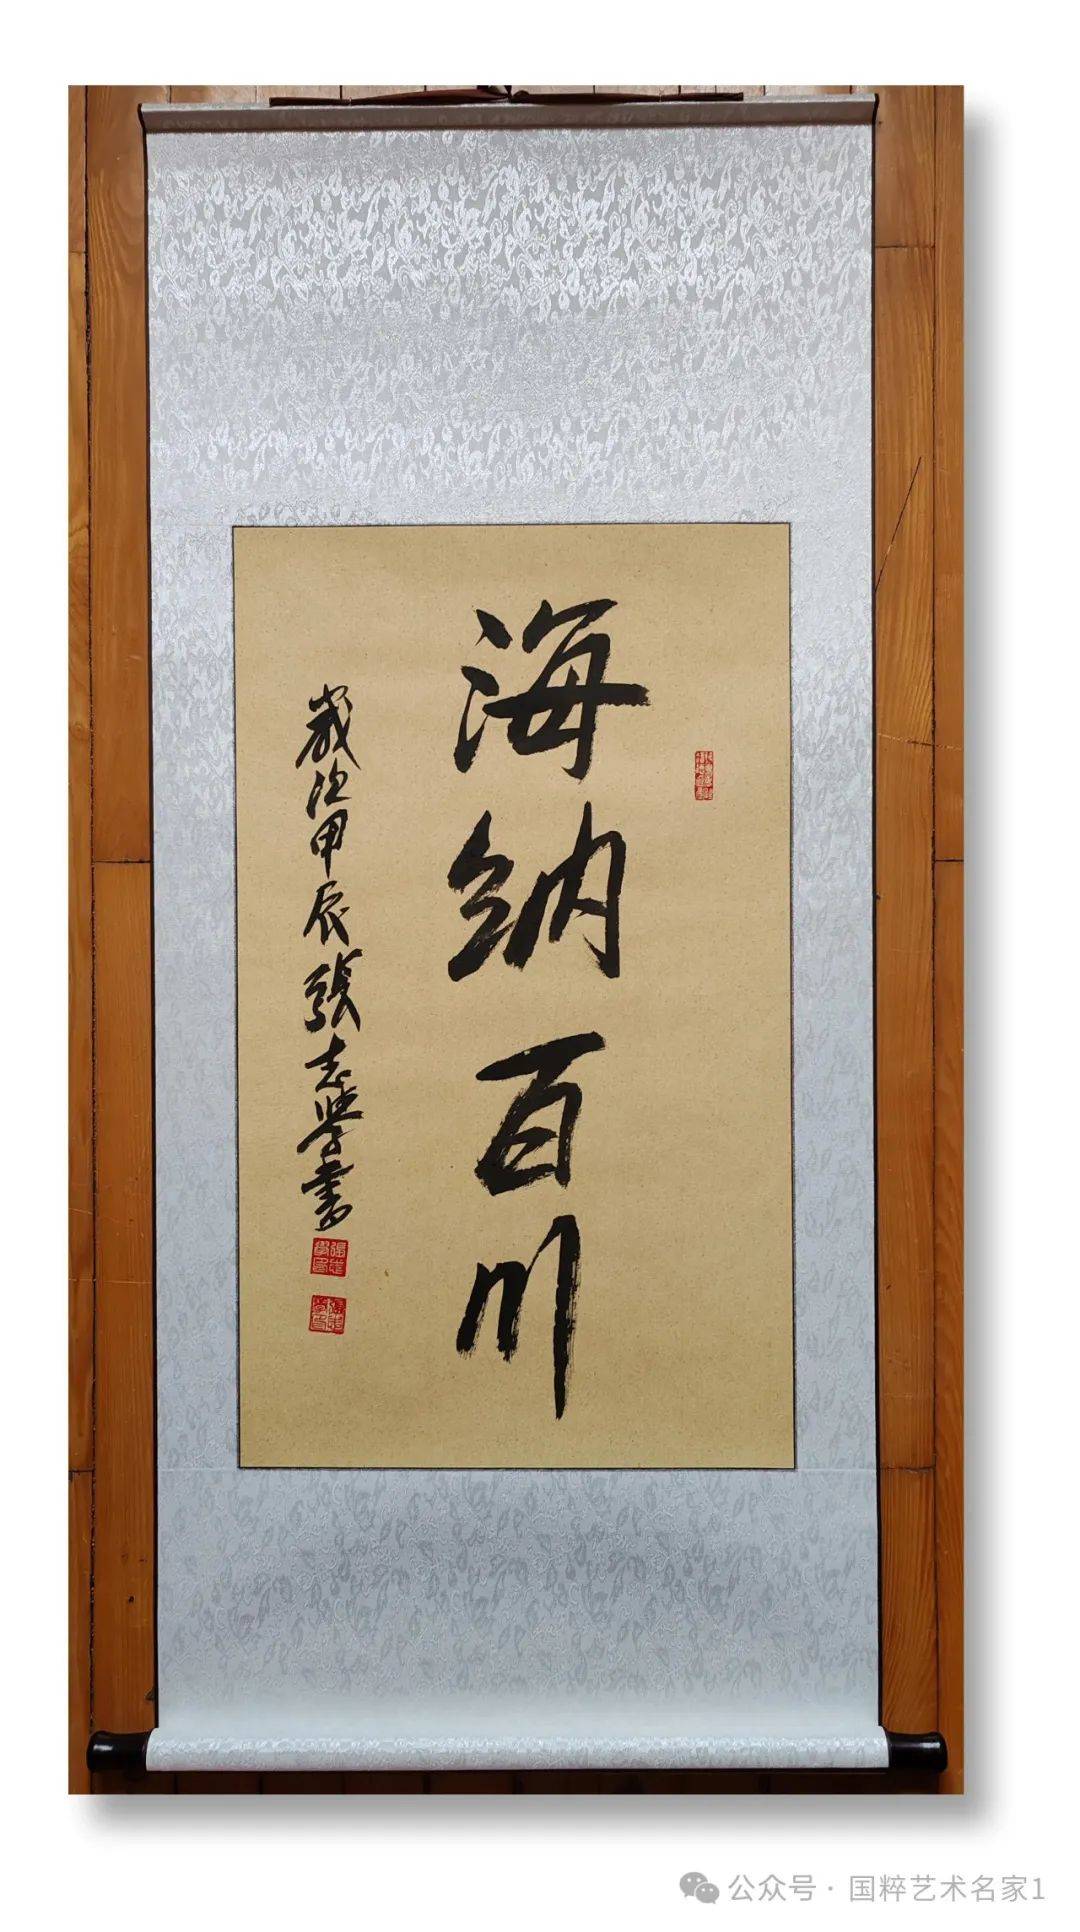 海纳百川
歲次甲辰張志学書
公众号·国粹艺术名家1